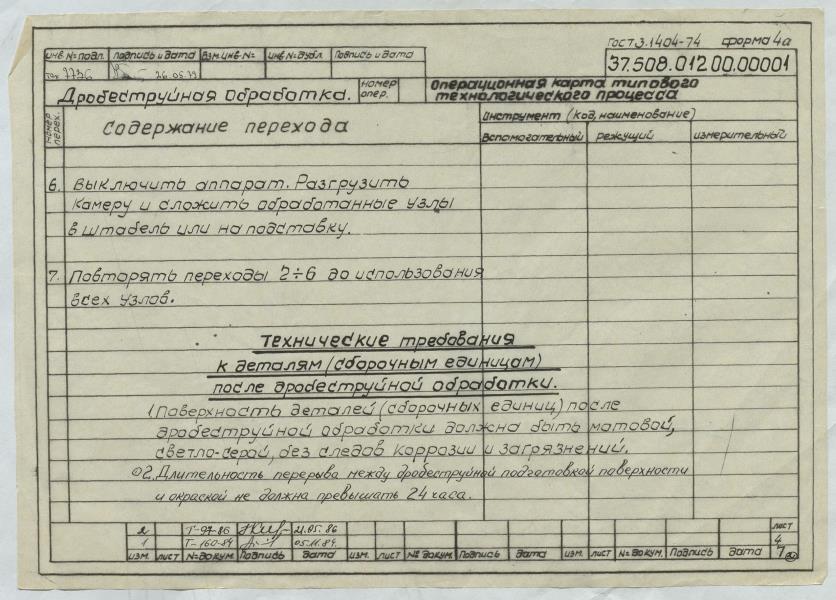 ГОСТ 3.1404-74 форма 4а
инв №подл. подпись и дата Взм.инв.№ инв №дубл. Подпись и дата
7736 26.05.79
37.508.012.00.00001
Дробеструйная обработка. номер опер. операционная карта типового
технологического процесса
номер перех. Содержание перехода Инструмент (код, наименование)
вспомогательный режущий измерительный
6. Выключить аппарат. Разгрузить
камеру и сложить обработанные узлы
в штабель или на подставку.
7. Повторять переходы 2÷6 до использования
всех узлов.
Технические требования
к деталям (сборочным единицам)
после дробеструйной обработки.
1. Поверхность деталей (сборочных единиц) после
дробеструйной обработки должна быть матовой,
светло-серой, без следов коррозии и загрязнений.
2. Длительность перерыва между дробеструйной подготовкой поверхности
и окраской не должна превышать 24 часа.
2 Т-97-86 21.05.86 лист
1 Т-160-84 05.11.84. 4
изм. лист №докум. Подпись дата изм. лист №докум. Подпись дата изм. лист №докум. Подпись дата 7